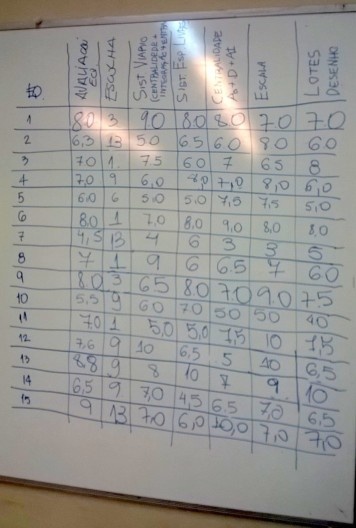 AVALIAÇÃO
ESCOLHA
SIST VIARIO
(CENTRALIDADE +
SIST. ESP. LIVRE
CENTRALIDADE
ESCALA
LOTES
DESENHO
1 8.0 3 9.0 8.0 8.0 7.0 7.0
2 6,3 13 5.0 6.5 6.0 8.0 6.0
3 7.0 1. 7.5 6.0 7 6.5 8
4 7,0 9 6,0 7,0 8,0 6,0
5 6.0 6 5.0 5,0 7,5 7,5 5,0
6 8.0 1 7,0 8.0 9,0 8,0 8,0
7 4,5 13 4 6 3 3 5
8 7 1 9 6 6.5 7 6.0
9 8.0 3 6.5 8.0 7.0 9.0 7.5
10 5,5 9 6.0 7.0 5.0 5.0 4.0
11 7.0 1 5,0 5,0 7,5 10 7,5
12 7,6 9 10 6,5 5 10 6,5
13 8,8 9 8 10 7 9 10
14 6,5 9 7,0 4,5 6,5 7,0 6,5
15 9 13 7.0 6,0 10,0 7,0 7,0